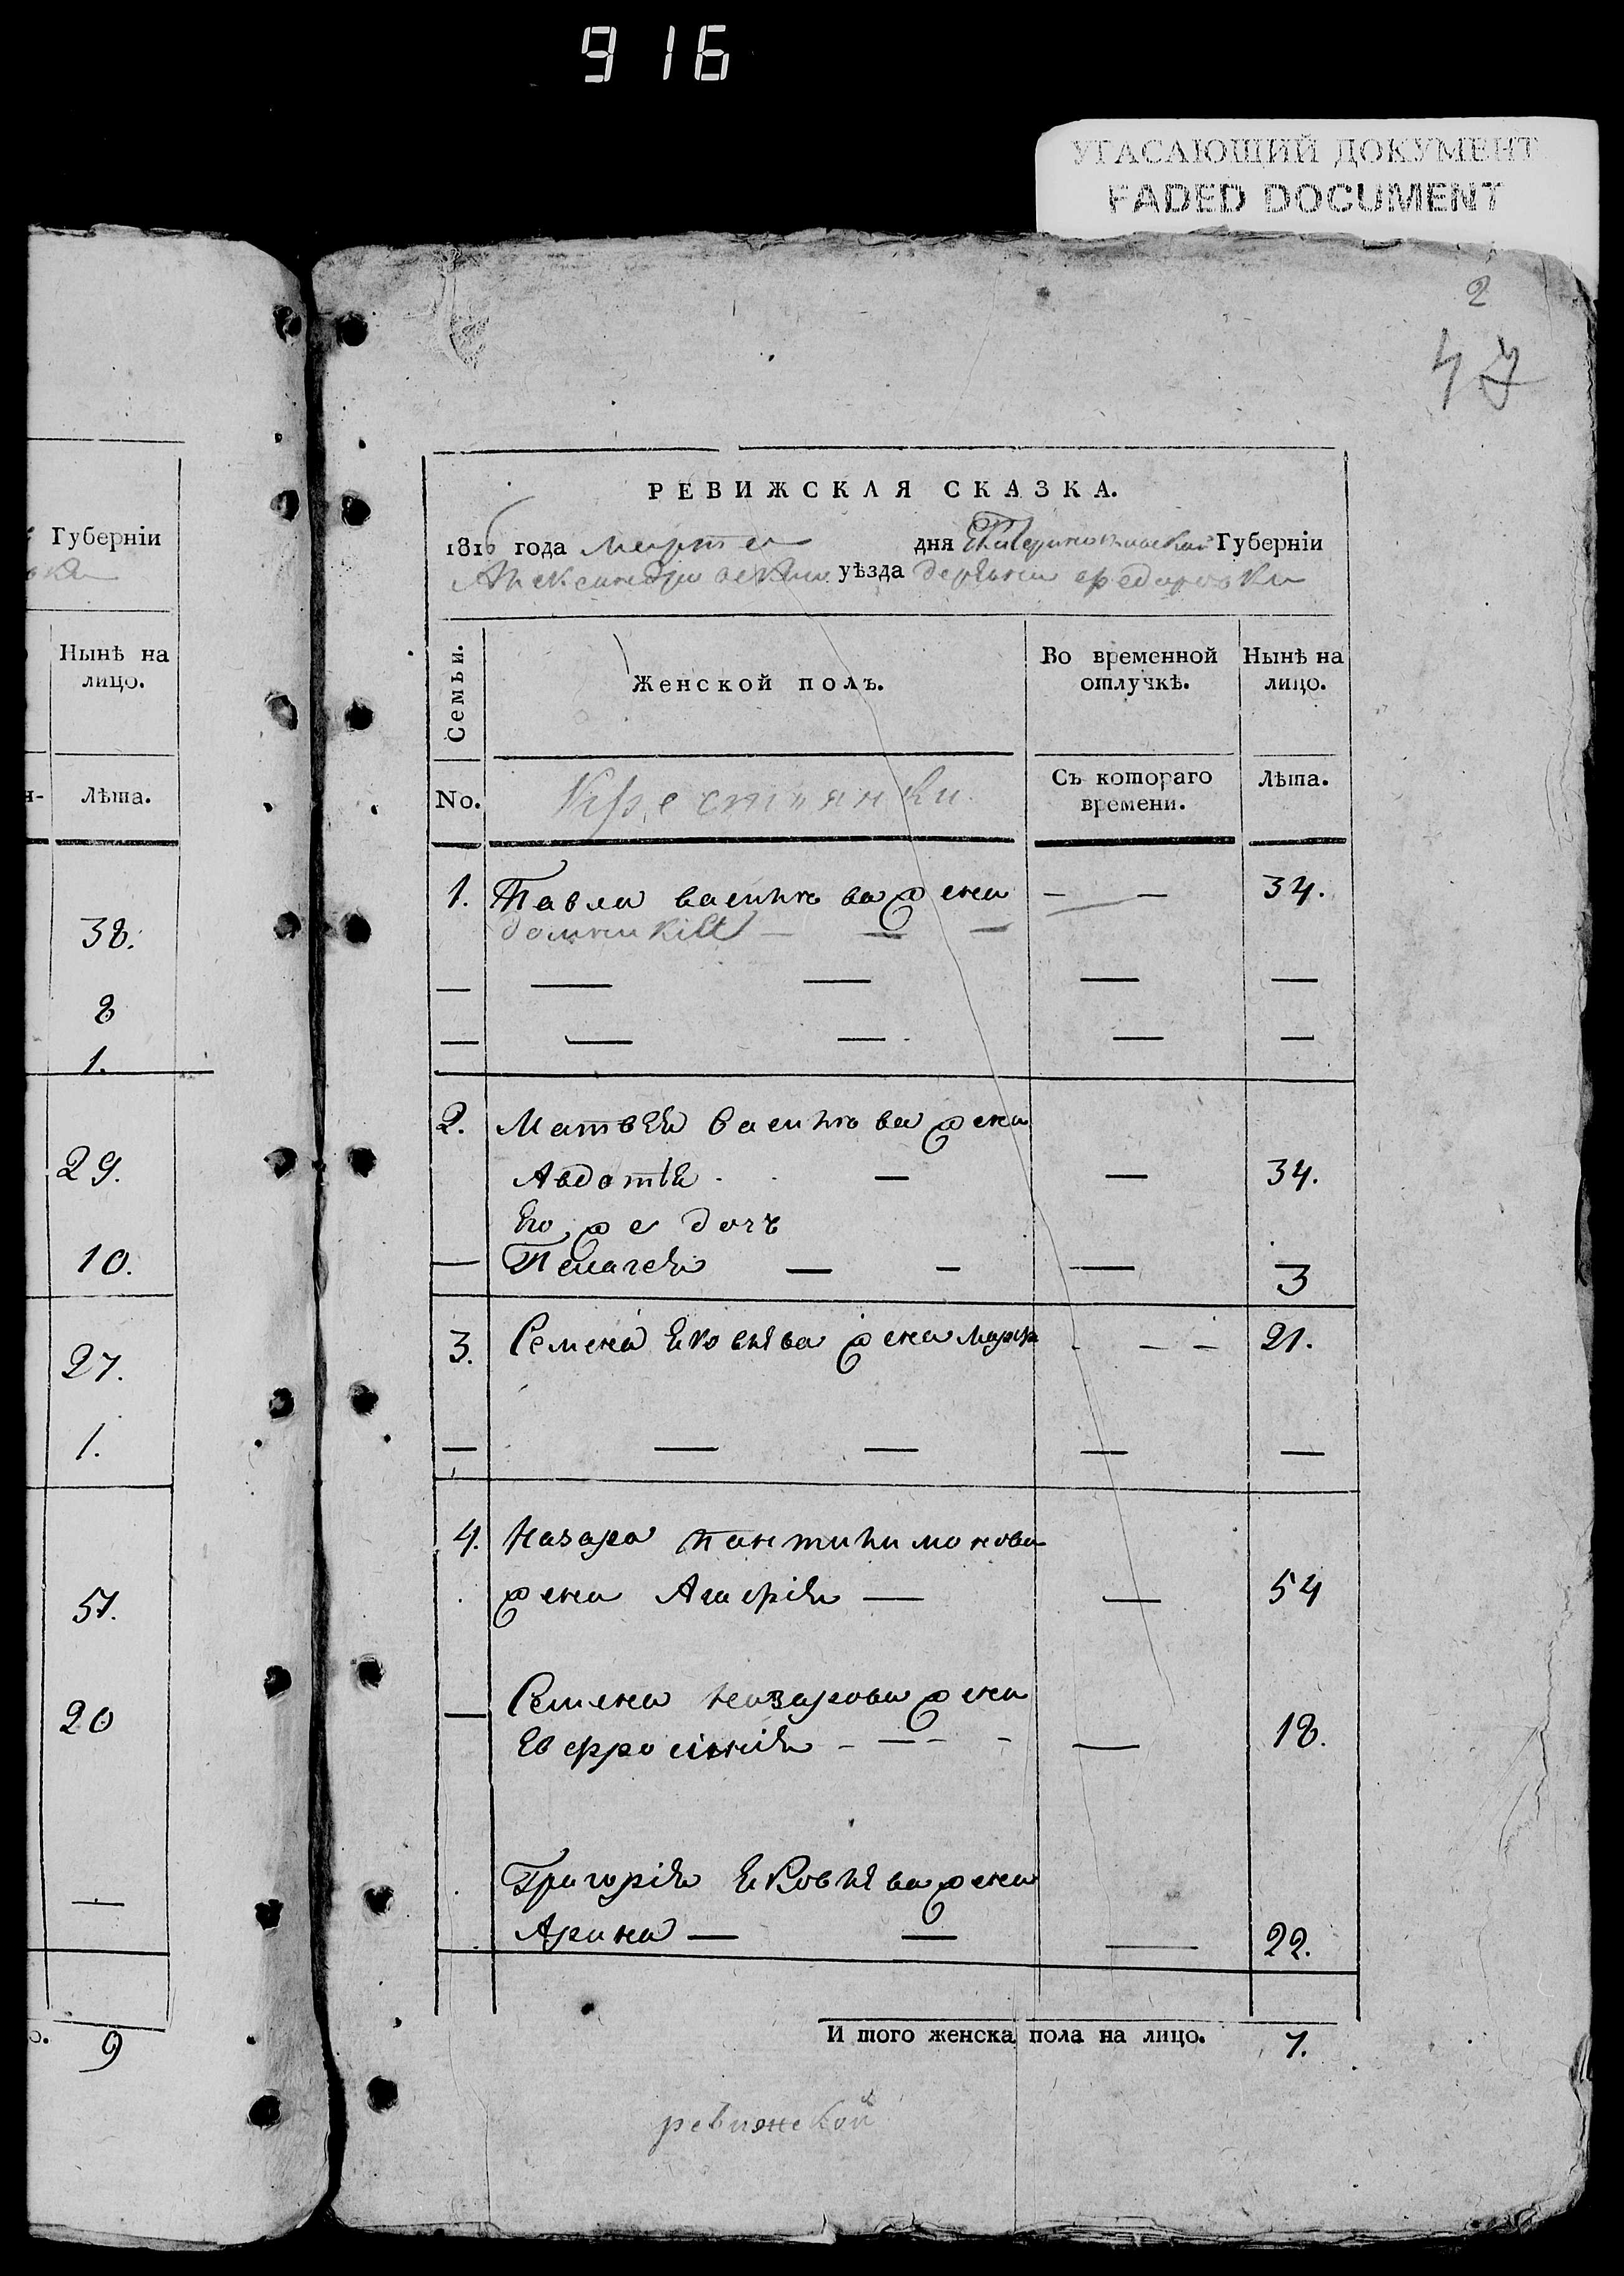 916
УГАСАЮЩИЙ ДОКУМЕНТ
FADED DOCUMENT
Губерніи
Нынѣ на
лицо.
Лѣта.
38.
8
1.
29.
10.
27.
1.
51.
20
9
2
47
РЕВИЖСКАЯ СКАЗКА.
1816 года марта дня Екатеринославской Губерніи
Александровскаго уѣзда деревни Федоровки
Семьи.
Женской полъ.
Во временной
отлучкѣ.
Нынѣ на
лицо.
No.
Крестьянки.
Съ котораго
времени.
Лѣта.
1. Павла василѣва жена — — 34.
домникія — — —
2. Матвѣя василѣва жена
Авдотья — — 34.
Его же дочь
Пелагея — — — 3
3. Семена Яковлѣва жена Марфа — — 21.
4. Назара Пантилимонова
жена Агафія — — 54
Семена Назарова жена
Евфросінія — — — — 18.
Григорія Яковлѣва жена
Арина — — — 22.
И того женска пола на лицо. 7.
ревижской